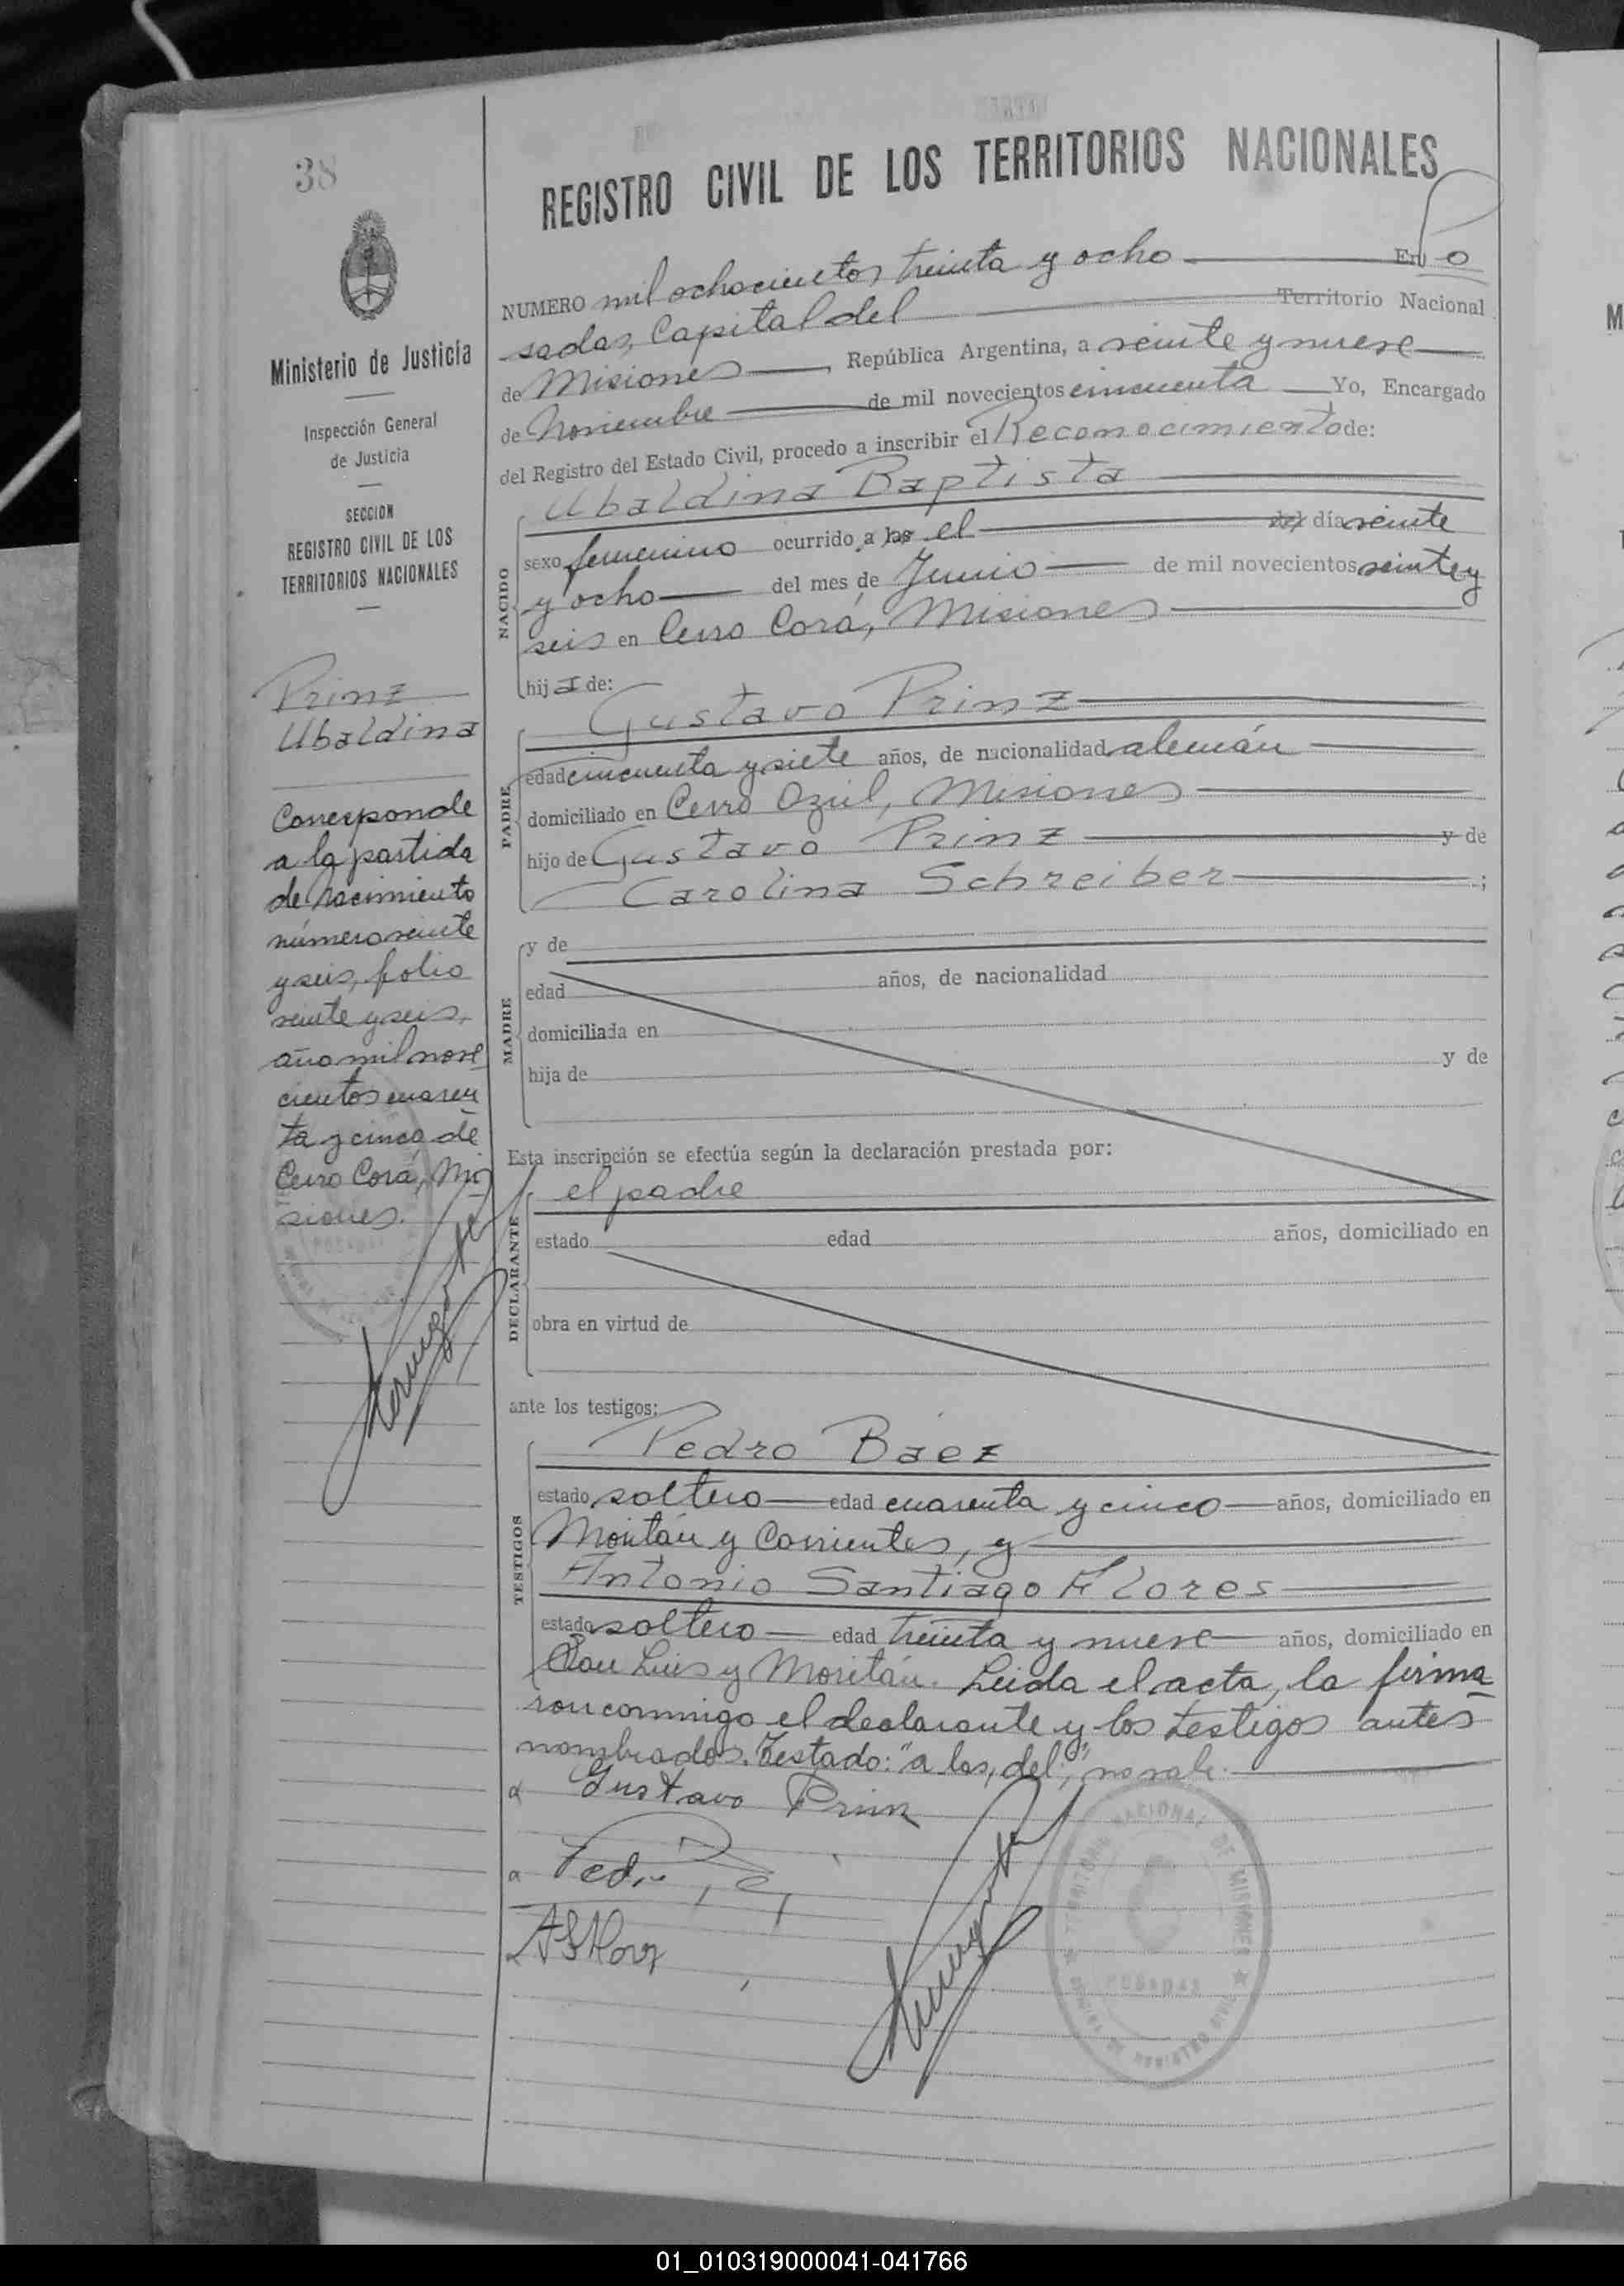 38
REGISTRO CIVIL DE LOS TERRITORIOS NACIONALES
NUMERO mil ochocientos treinta y ocho En Po
sadas, Capital del Territorio Nacional
de Misiones, República Argentina, a veinte y nueve
de Noviembre de mil novecientos cincuenta Yo, Encargado
del Registro del Estado Civil, procedo a inscribir el Reconocimiento de:
Ubaldina Baptista
NACIDO
sexo femenino ocurrido a las el del día veinte
y ocho del mes de Junio de mil novecientos veinte y
seis en Cerro Corá, Misiones
hija de:
Gustavo Prinz
PADRE
edad cincuenta y siete años, de nacionalidad alemán
domiciliado en Cerro Azul, Misiones
hijo de Gustavo Prinz y de
Carolina Schreiber ;
MADRE
y de
edad años, de nacionalidad
domiciliada en
hija de y de
Esta inscripción se efectúa según la declaración prestada por:
el padre
DECLARANTE
estado edad años, domiciliado en
obra en virtud de
ante los testigos:
Pedro Baez
TESTIGOS
estado soltero edad cuarenta y cinco años, domiciliado en
Moritán y Corrientes, y
Antonio Santiago Flores
estado soltero edad treinta y nueve años, domiciliado en
San Luis y Moritán. Leida el acta, la firma
ron conmigo el declarante y los testigos antes
nombrados. Testado: "a las, del", no vale.
Gustavo Prinz
Pedro
ASFlores
TERRITORIO NACIONAL DE MISIONES
POSADAS
Ministerio de Justicia
Inspección General
de Justicia
SECCION
REGISTRO CIVIL DE LOS
TERRITORIOS NACIONALES
Prinz
Ubaldina
Corresponde
a la partida
de Nacimiento
número veinte
y seis, folio
veinte y seis,
año mil nove
cientos cuaren
ta y cinco de
Cerro Corá, Mi
siones.
POSADAS
01_010319000041-041766